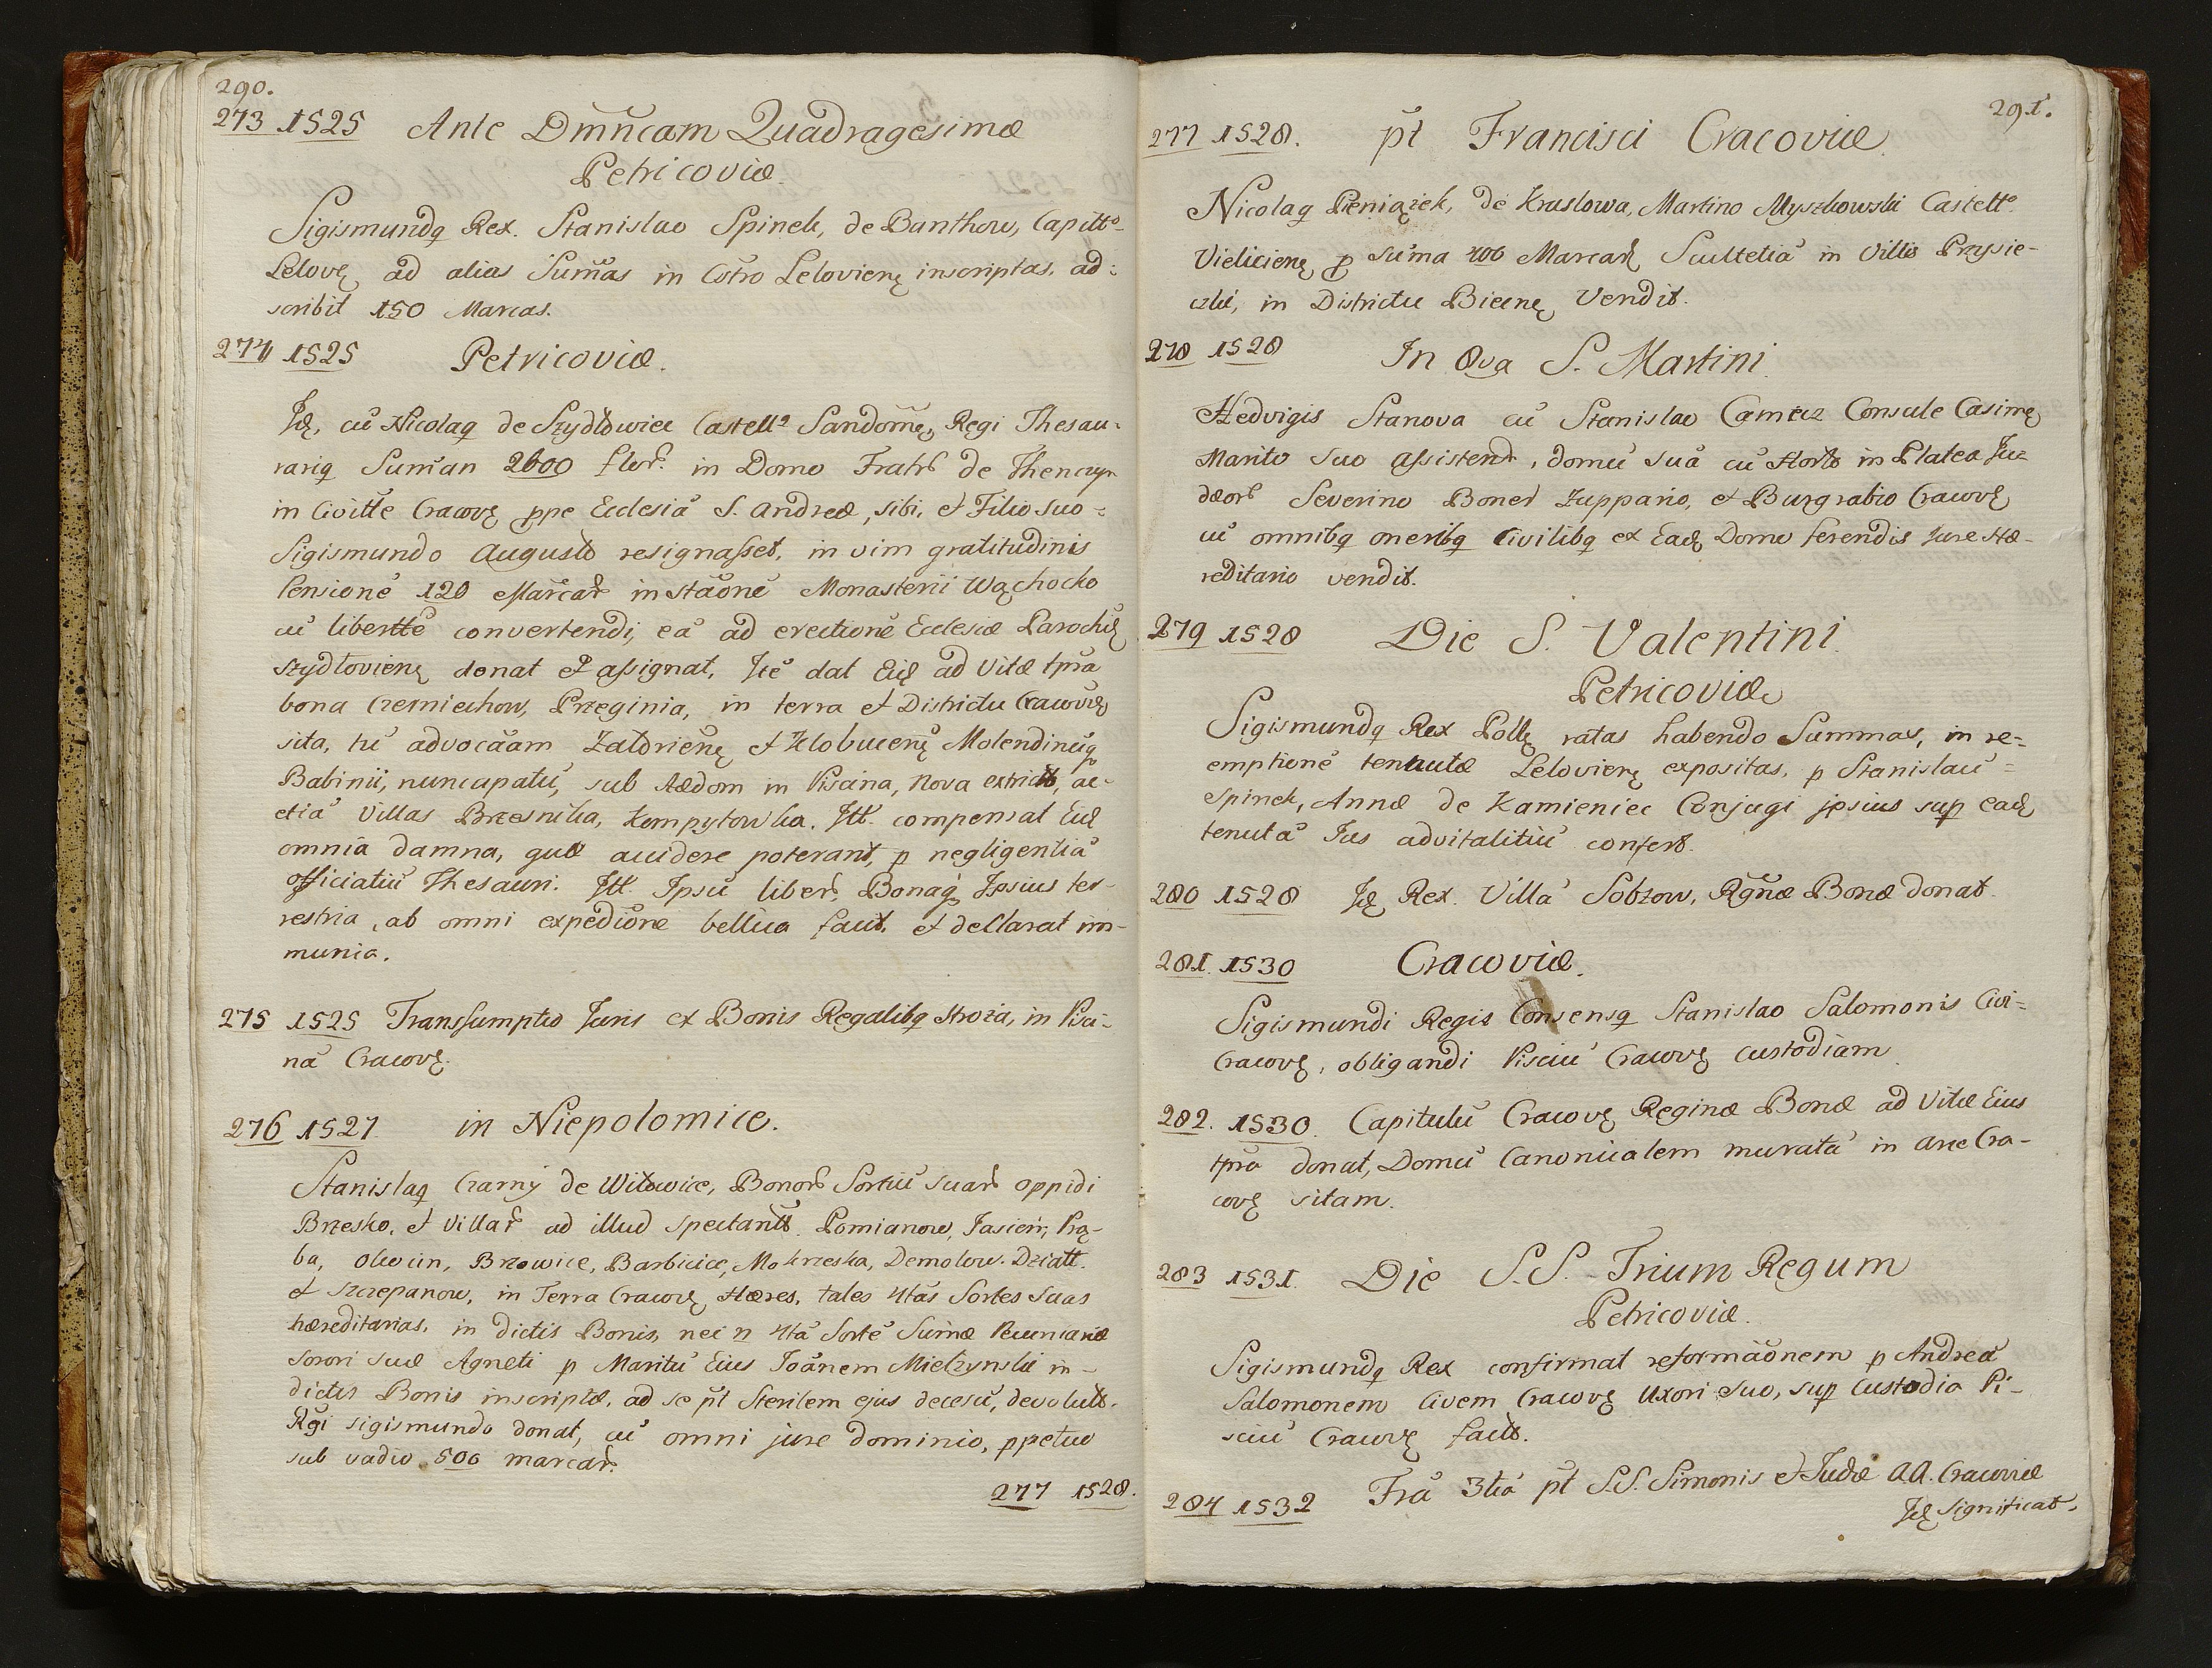 290.
273 1525 Ante Dm̃ncam Quadragesimæ
Petricoviæ.
Sigismundq Rex. Stanislao Spinek, de Banthow, Capitt°
Lelovę ad alias Sum̃as in Cstro Lelovienę inscriptas, ad:
scribit 150 Marcas.
274 1525 Petricoviæ.
Idę, cũ Nicolaq de Szydłowiec Castell° Sandom̃ę, Regi Thesau-
rariq Sum̃an 2600 flor. in Domo Fratrũ de Thenczyn
in Civitte Cracovę ppe Ecclesiã S. Andreæ, sibi, et Filio suo =
Sigismundo Augusto resignasset, in vim gratitudinis
Pensionẽ 120 Marcar̃ in stãonẽ Monasterii Wąchocko
cũ libertte convertendi, eã ad erectionẽ Ecclesiæ Parochię
Szydłovienę donat et assignat, Itẽ dat Eidę ad vitæ tpra
bona Czerniechow, Przeginia, in terra et Districtu Cracovię
sita, tũ advocãam Zatorienę et Klobucenę Molendinũq
Babinii, nuncupatũ, sub Ædom in Piscina, nova extrictt, ac-
etiã Villas Brzesnika, Kempytowka. Itt. compensat Eidę
omnia damna, quæ accidere poterant, p negligentiã
officiatiũ Thesauri. Itt. Ipsũ liber, Bonaq Ipsius ter-
restria, ab omni expedione bellica facit, et declarat im-
munia.
275 1525 Transsumptio Juris ex Bonis Regalibq Stroza, in Pisci-
nã Cracovę.
276 1527 in Niepolomice.
Stanislaq Czarny de Witowice, Bonorũ Sortiũ suarũ oppidi
Brzesko, et Villar̃ ad illud spectantt Pomianow, Jasien, Po̧-
ba, Okocin, Brzowice, Barbicice, Mokrzeska, Demolow. Dziatt.
et Szczepanow, in Terra Cracovę Hæres, tales 4tãs Sortes suas
hæreditarias, in dictis Bonis, nec n 4tã Sortẽ Sum̃æ Pecuniariæ
Sorori suæ Agneti p Maritũ Eius Joãnem Mielzynski in-
dictis Bonis inscriptæ, ad se p̃t Sterilem ejus decesũ, devolutt.
Rgi Sigismundo donat, cũ omni jure dominio, ppetuo
sub vadio 500 marcar̃.
277 1528.
291.
277 1528. p̃t Francisci Cracoviæ
Nicolaq Pieniążek, de Kruslowa, Martino Myszkowski Castett°
Vieliciene, p Sum̃a 400 Marcarũ Scultetiã in Villis Przysie-
czki, in Districtu Biecenę Vendit.
278 1528 In 8va S. Martini
Hedvigis Stanova cũ Stanislao Camicz Consule Casimę
Marito suo assistente, domũ suã cũ Horto in Platea Ju-
dæorũ Severino Boner Zuppario, et Burgrabio Cracovę
cũ omnibq oneribq Civilibq ex Eadę Domo ferendis Jure Hæ-
reditario vendit.
279 1528 Die S. Valentini
Petricoviæ
Sigismundq Rex Pollę ratas habendo Summas, in re-
emptionẽ tenutæ Lelovienę expositas, p Stanislaũ =
Spinek, Annæ de Kamieniec Conjugi ipsius sup eadę
tenutã Jus advitalitiũ confert.
280 1528 Idę Rex. Villã Sobzow, Rg̃næ Bonæ donat.
281. 1530 Cracoviæ.
Sigismundi Regis Consensq Stanislao Salomonis Civi-
Cracovę, obligandi Pisciũ Cracovę custodiam
282. 1530. Capitulũ Cracovę Reginæ Bonæ ad vitæ Eius
tpra donat, Domũ Canonicalem muratã in arce Cra-
covę sitam.
283 1531. Die S.S. Trium Regum
Petricoviæ.
Sigismundq Rex confirmat reformãonem p Andreã
Salomonem Civem Cracovę Uxori suo, sup Custodia Pi-
sciũ Cracovę factt.
284 1532 Fra 3tiã p̃t S.S. Simonis et Judæ A.A. Cracoviæ
Idę significat,